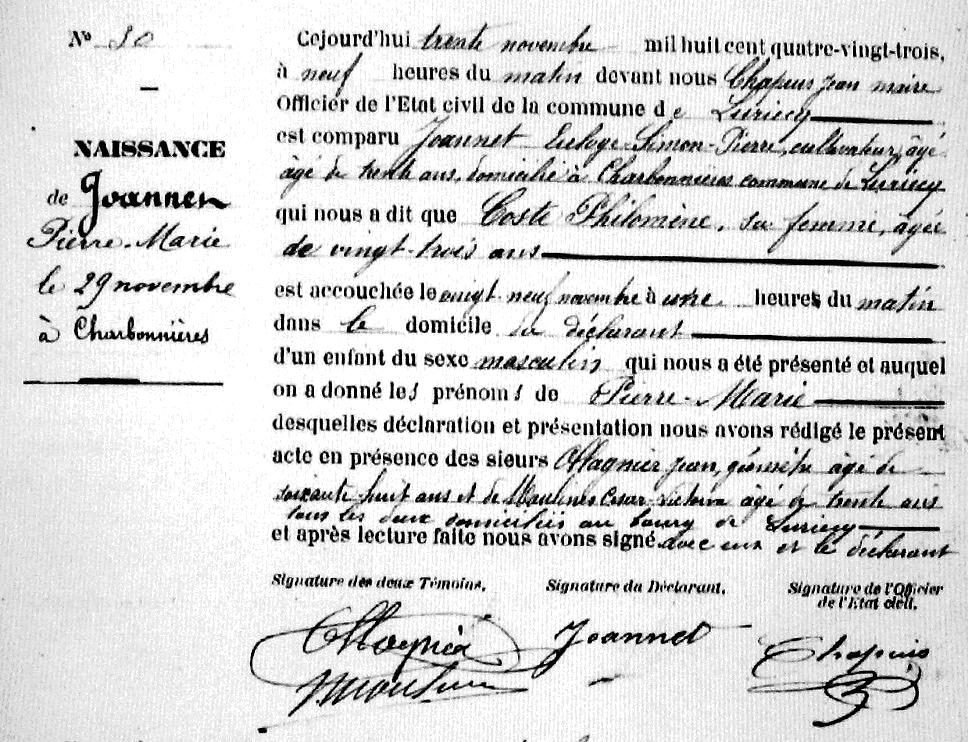 N° 30
NAISSANCE
de Joannet
Pierre-Marie
le 29 novembre
à Charbonnières
Cejourd'hui trente novembre mil huit cent quatre-vingt-trois,
à neuf heures du matin devant nous Chapuis Jean maire
Officier de l'Etat civil de la commune de Luriecq
est comparu Joannet Euloge-Simon-Pierre, cultivateur, âgé
âgé de trente ans, domicilié à Charbonnières commune de Luriecq
qui nous a dit que Coste Philomène, sa femme, âgée
de vingt-trois ans
est accouchée le vingt-neuf novembre à une heures du matin
dans le domicile du déclarant
d'un enfant du sexe masculin qui nous a été présenté et auquel
on a donné les prénoms de Pierre-Marie
desquelles déclaration et présentation nous avons rédigé le présent
acte en présence des sieurs Magnier Jean, âgé de
soixante-huit ans et de âgé de trente ans
tous les deux domiciliés au bourg de Luriecq
et après lecture faite nous avons signé avec eux et le déclarant
Signature des deux Témoins.
Signature du Déclarant.
Signature de l'Officier
de l'Etat civil.
Joannet
Chapuis